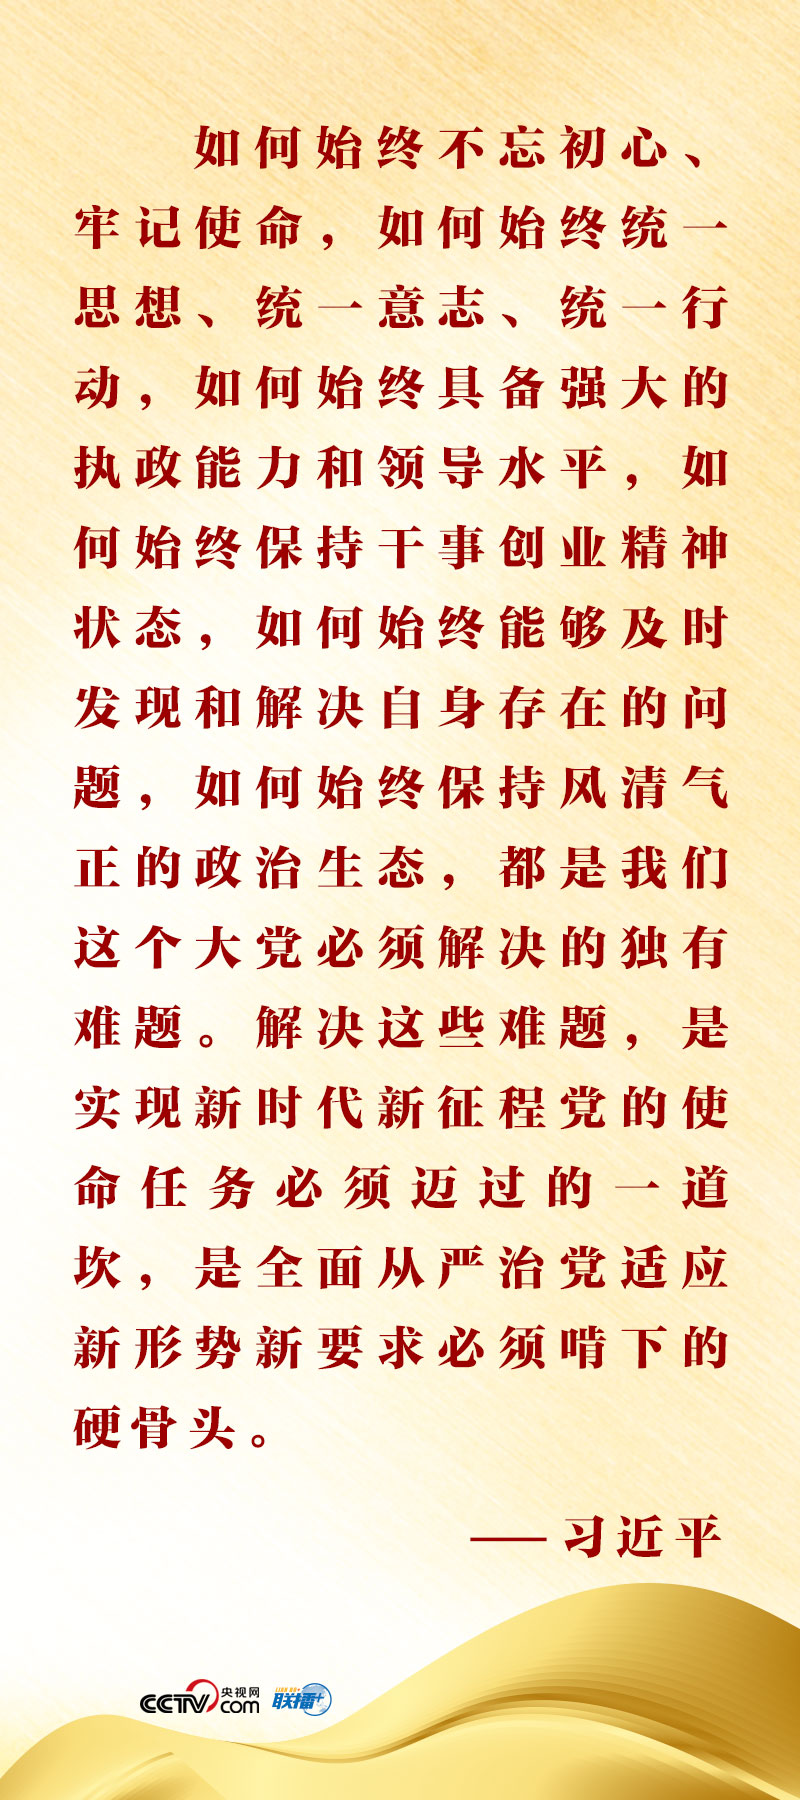 如何始终不忘初心、
牢记使命，如何始终统一
思想、统一意志、统一行
动，如何始终具备强大的
执政能力和领导水平，如
何始终保持干事创业精神
状态，如何始终能够及时
发现和解决自身存在的问
题，如何始终保持风清气
正的政治生态，都是我们
这个大党必须解决的独有
难题。解决这些难题，是
实现新时代新征程党的使
命任务必须迈过的一道
坎，是全面从严治党适应
新形势新要求必须啃下的
硬骨头。
——习近平
CCTV 央视网
com
联播+